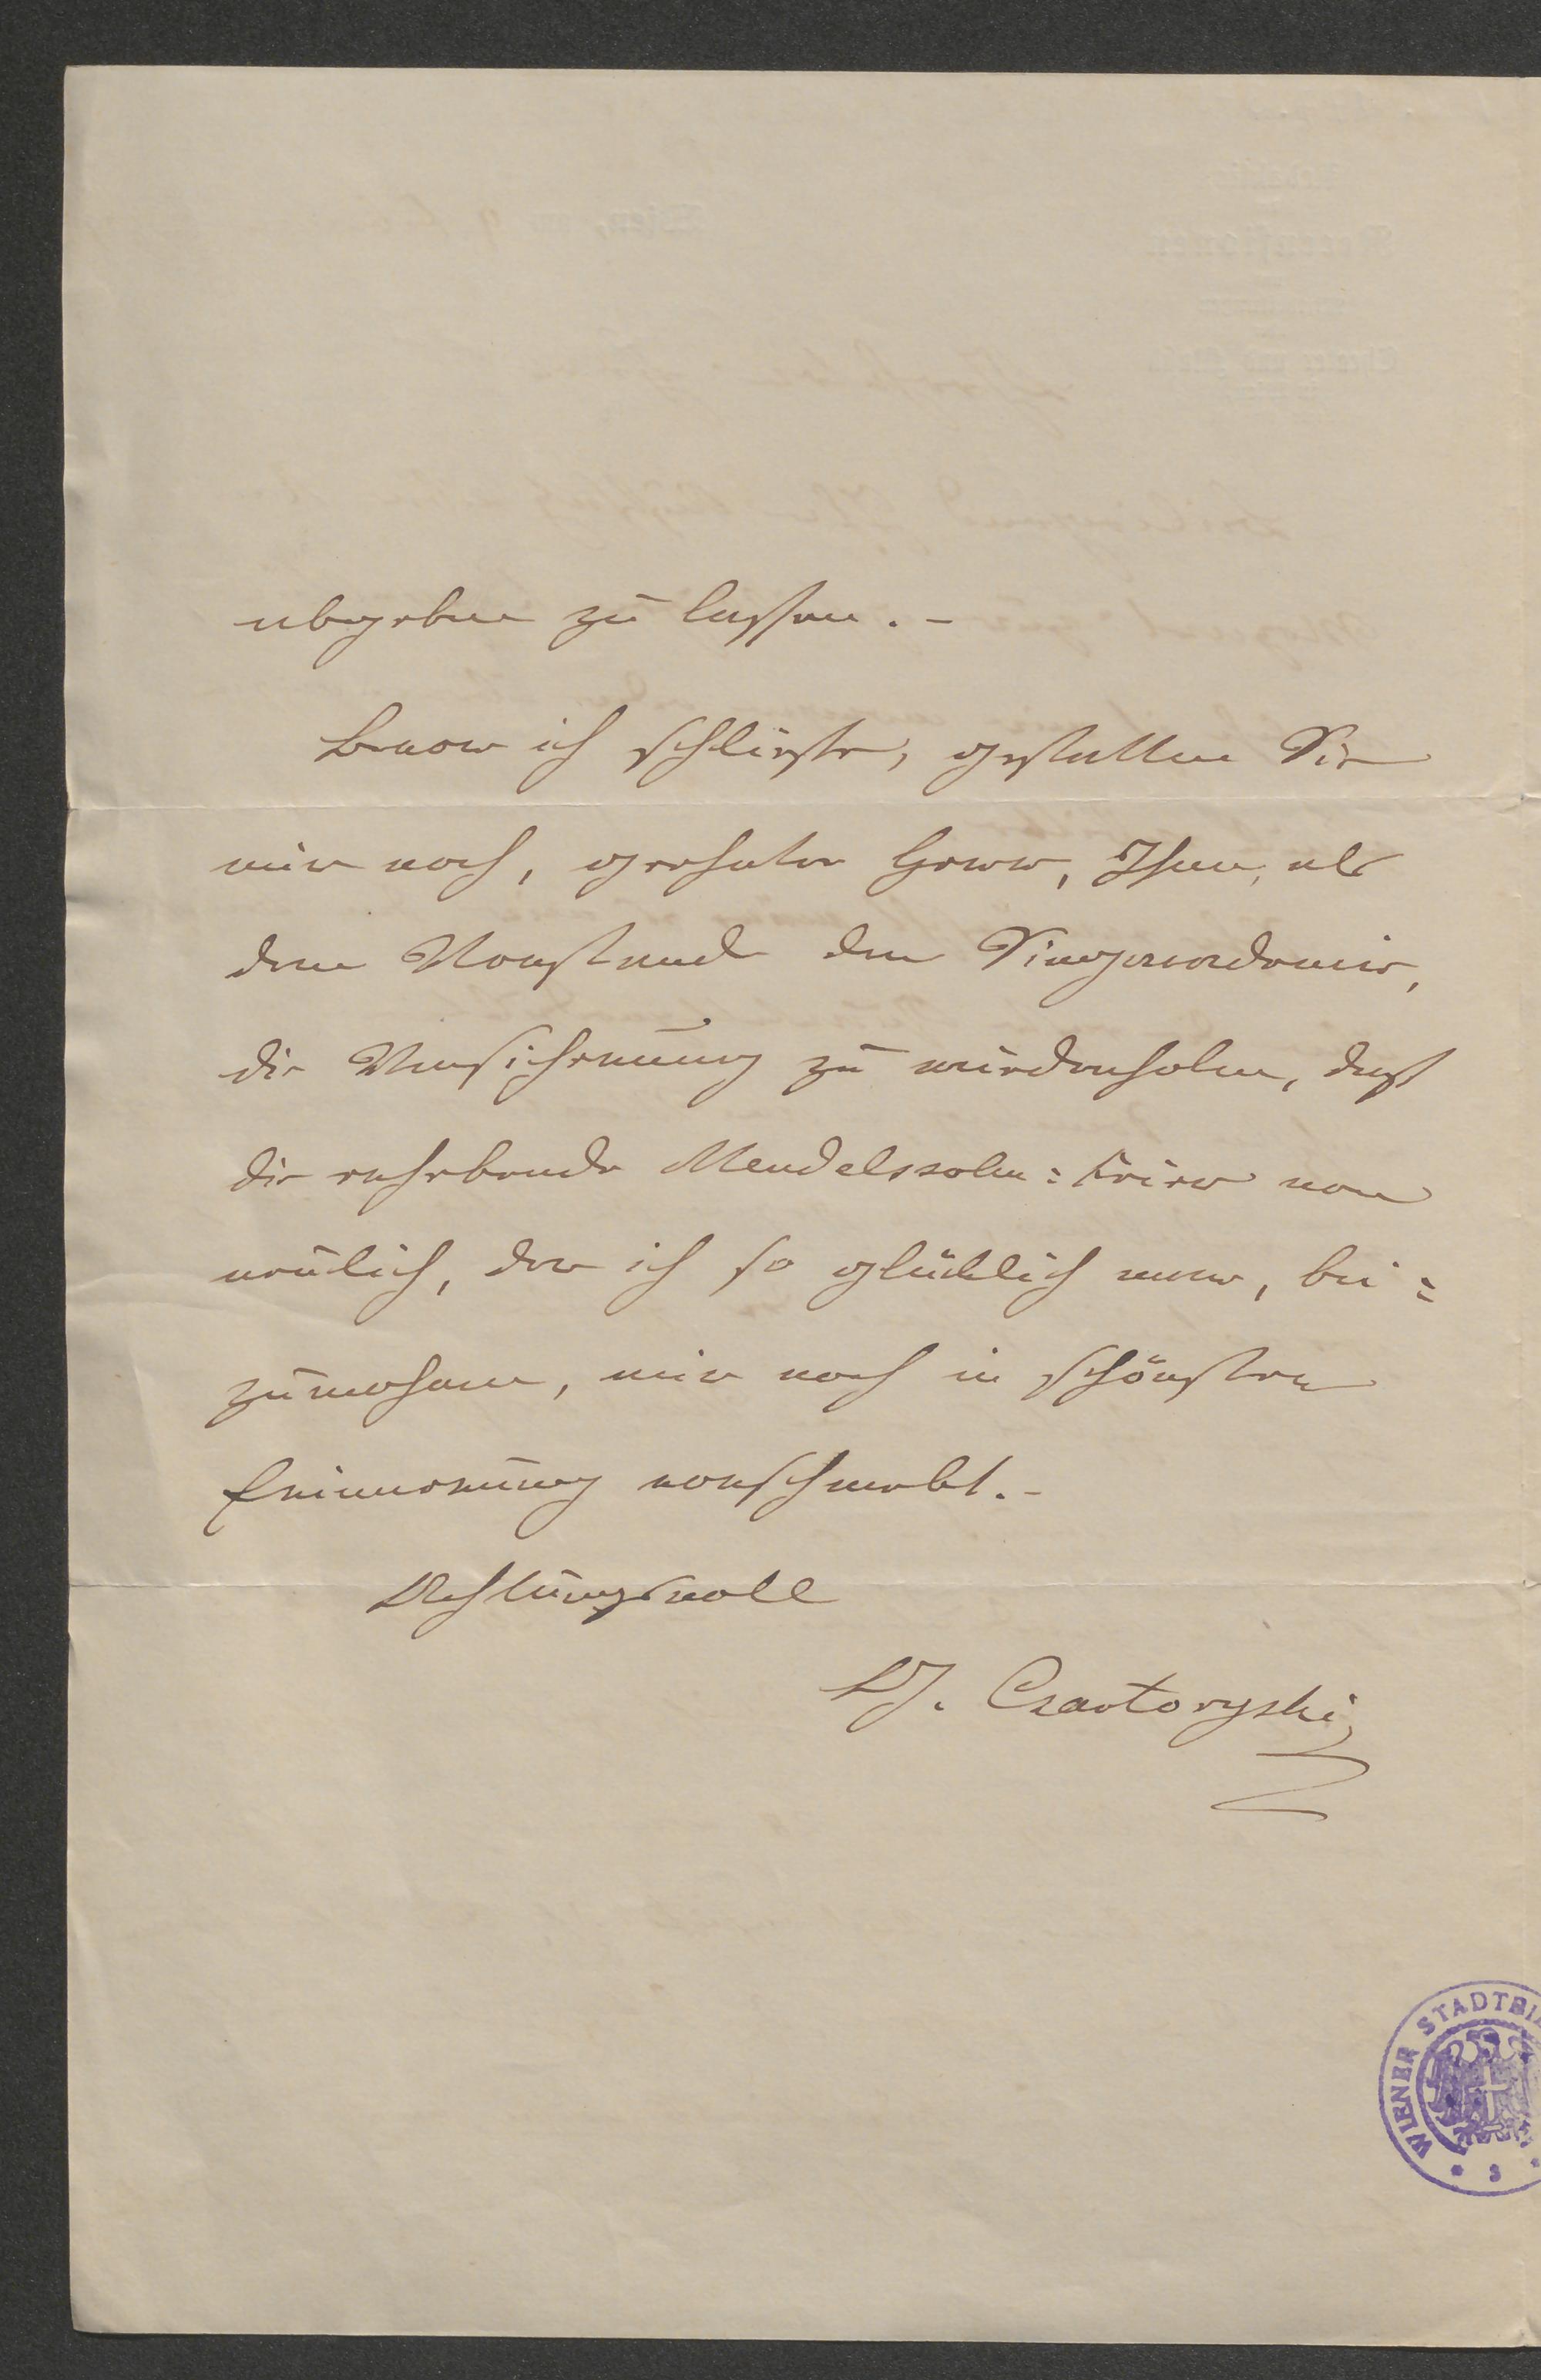 abgeben zu lassen. –
Bevor ich schließe, gestatten Sie
mir noch, geehrter Herr, Ihnen, als
dem Vorstand der Singacademie,
die Versicherung zu wiederholen, daß
die erhebende Mendelssohn=Feier von
neulich, der ich so glücklich war, bei=
zuwohnen, mir noch in schönster
Erinnerung vorschwebt. –
Achtungsvoll
Czartoryski
WIENER STADTBI